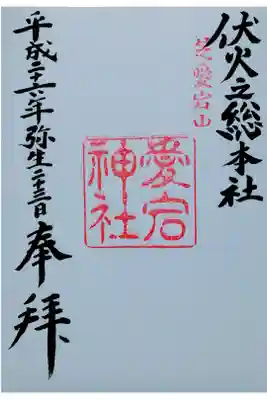 伏火之総本社
芝愛宕山
愛宕
神社
奉拝
平成二十六年弥生二十三日